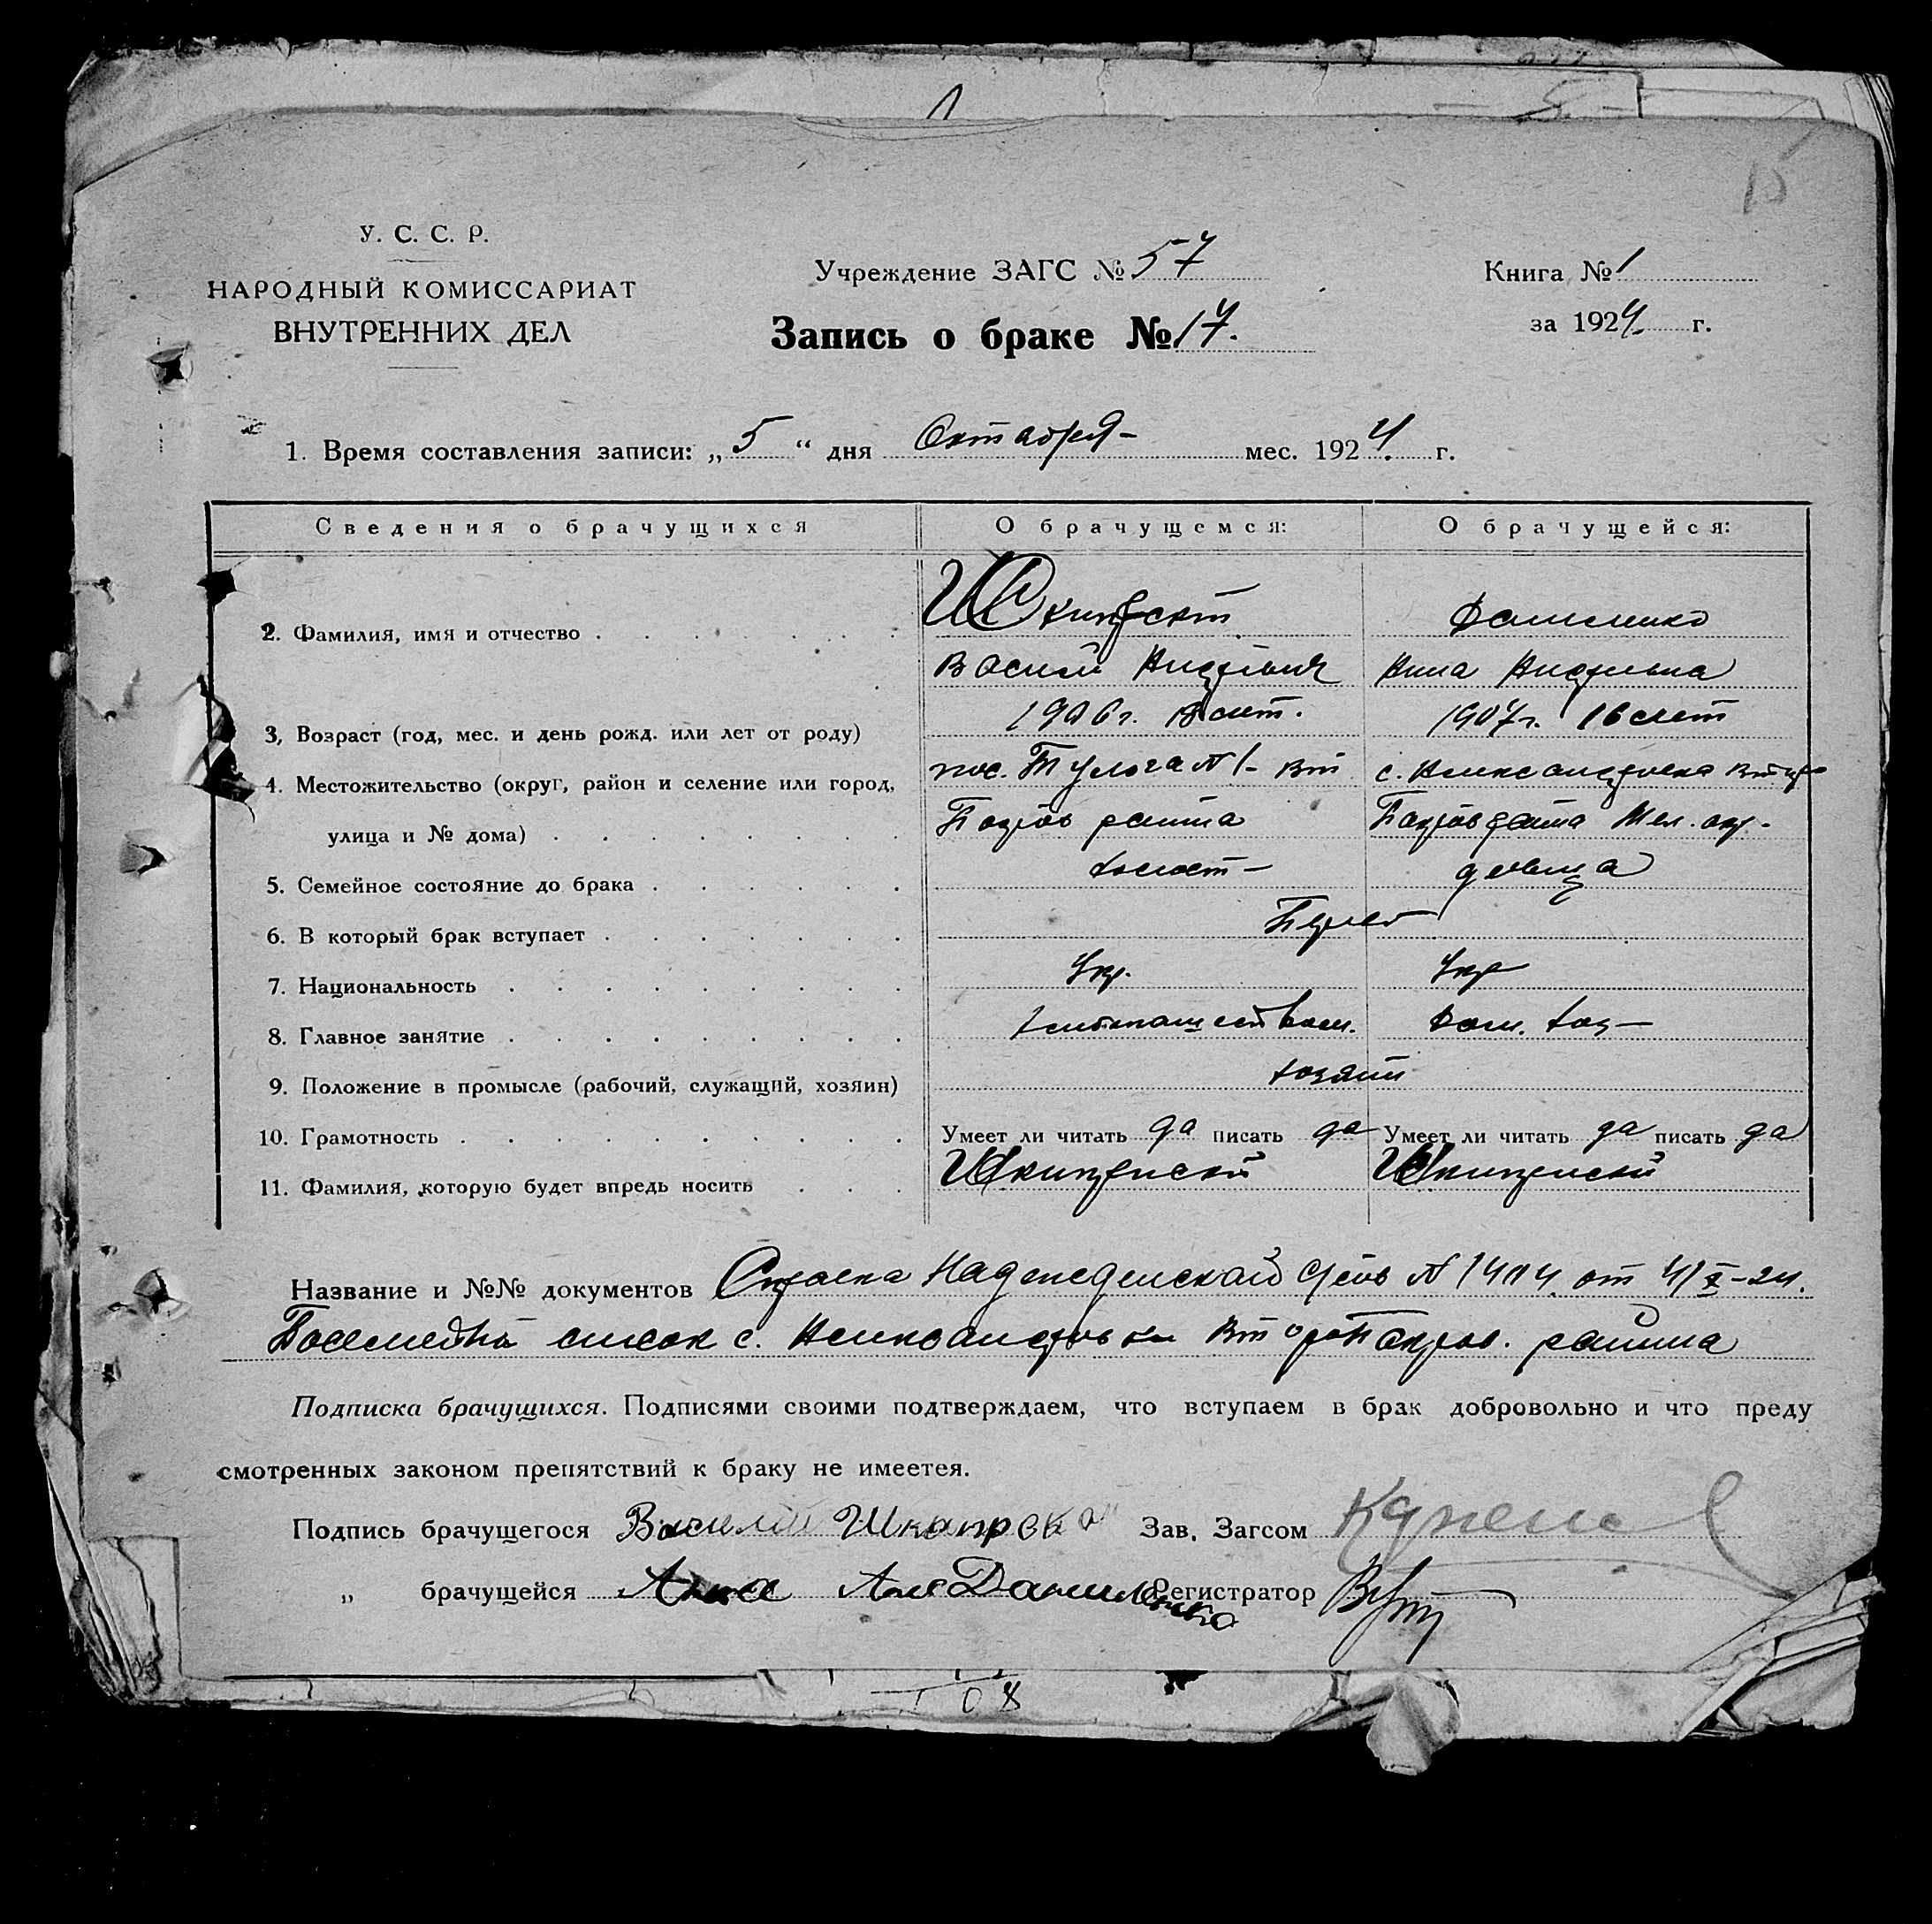 15
У. С. С. Р.
НАРОДНЫЙ КОМИССАРИАТ
ВНУТРЕННИХ ДЕЛ
Учреждение ЗАГС № 57
Книга № 1
Запись о браке № 17.
за 1924 г.
1. Время составления записи: „ 5 “ дня Октября мес. 1924 г.
Сведения о брачущихся О брачущемся: О брачущейся:
2. Фамилия, имя и отчество
Василий Андреевич Анна Андреевна
3, Возраст (год, мес. и день рожд. или лет от роду) 1906 г. 18 лет. 1907 г. 16 лет
4. Местожительство (округ, район и селение или город, пос. № 1 Вт с. Александровка
улица и № дома) Покров района Покров района Мел. окр.
5. Семейное состояние до брака холост девица
6. В который брак вступает Первый
7. Национальность Укр. Укр
8. Главное занятие хлебопашеством. Дом. хоз
9. Положение в промысле (рабочий, служащий, хозяин) хозяин
10. Грамотность Умеет ли читать да писать да Умеет ли читать да писать да
11. Фамилия, которую будет впредь носить
Название и №№ документов Справка № 1404 от 4/X-24.
Посемейный список с. Александровки ВтороПокров. района
Подписка брачущихся. Подписями своими подтверждаем, что вступаем в брак добровольно и что преду
смотренных законом препятствий к браку не имеется.
Подпись брачущегося Василий Зав. Загсом
„ брачущейся Анна Данильенко Регистратор
108